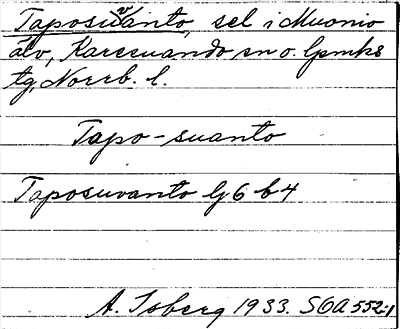 Taposuvanto, sel i Muonio
älv, Karesuando sn o. lpmks
tg, Norrb. l.
Tapo-suanto
Taposuvanto lj 6 b 4
A. Isberg 1933. SOA 552:1